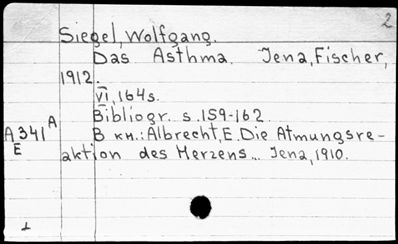 2
Siegel, Wolfgang.
Das Asthma. Jena, Fischer,
1912.
VI, 164s.
Bibliogr. s. 159-162.
A341 A
E
В кн.: Albrecht, E. Die Atmungsre-
aktion des Herzens... Jena, 1910.
1